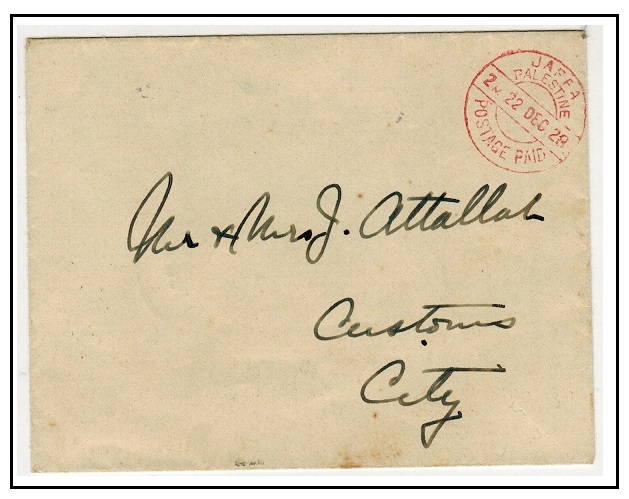 JAFFA
PALESTINE
2M 22 DEC 28
POSTAGE PAID
Mr & Mrs J. Attallah
Customs
City